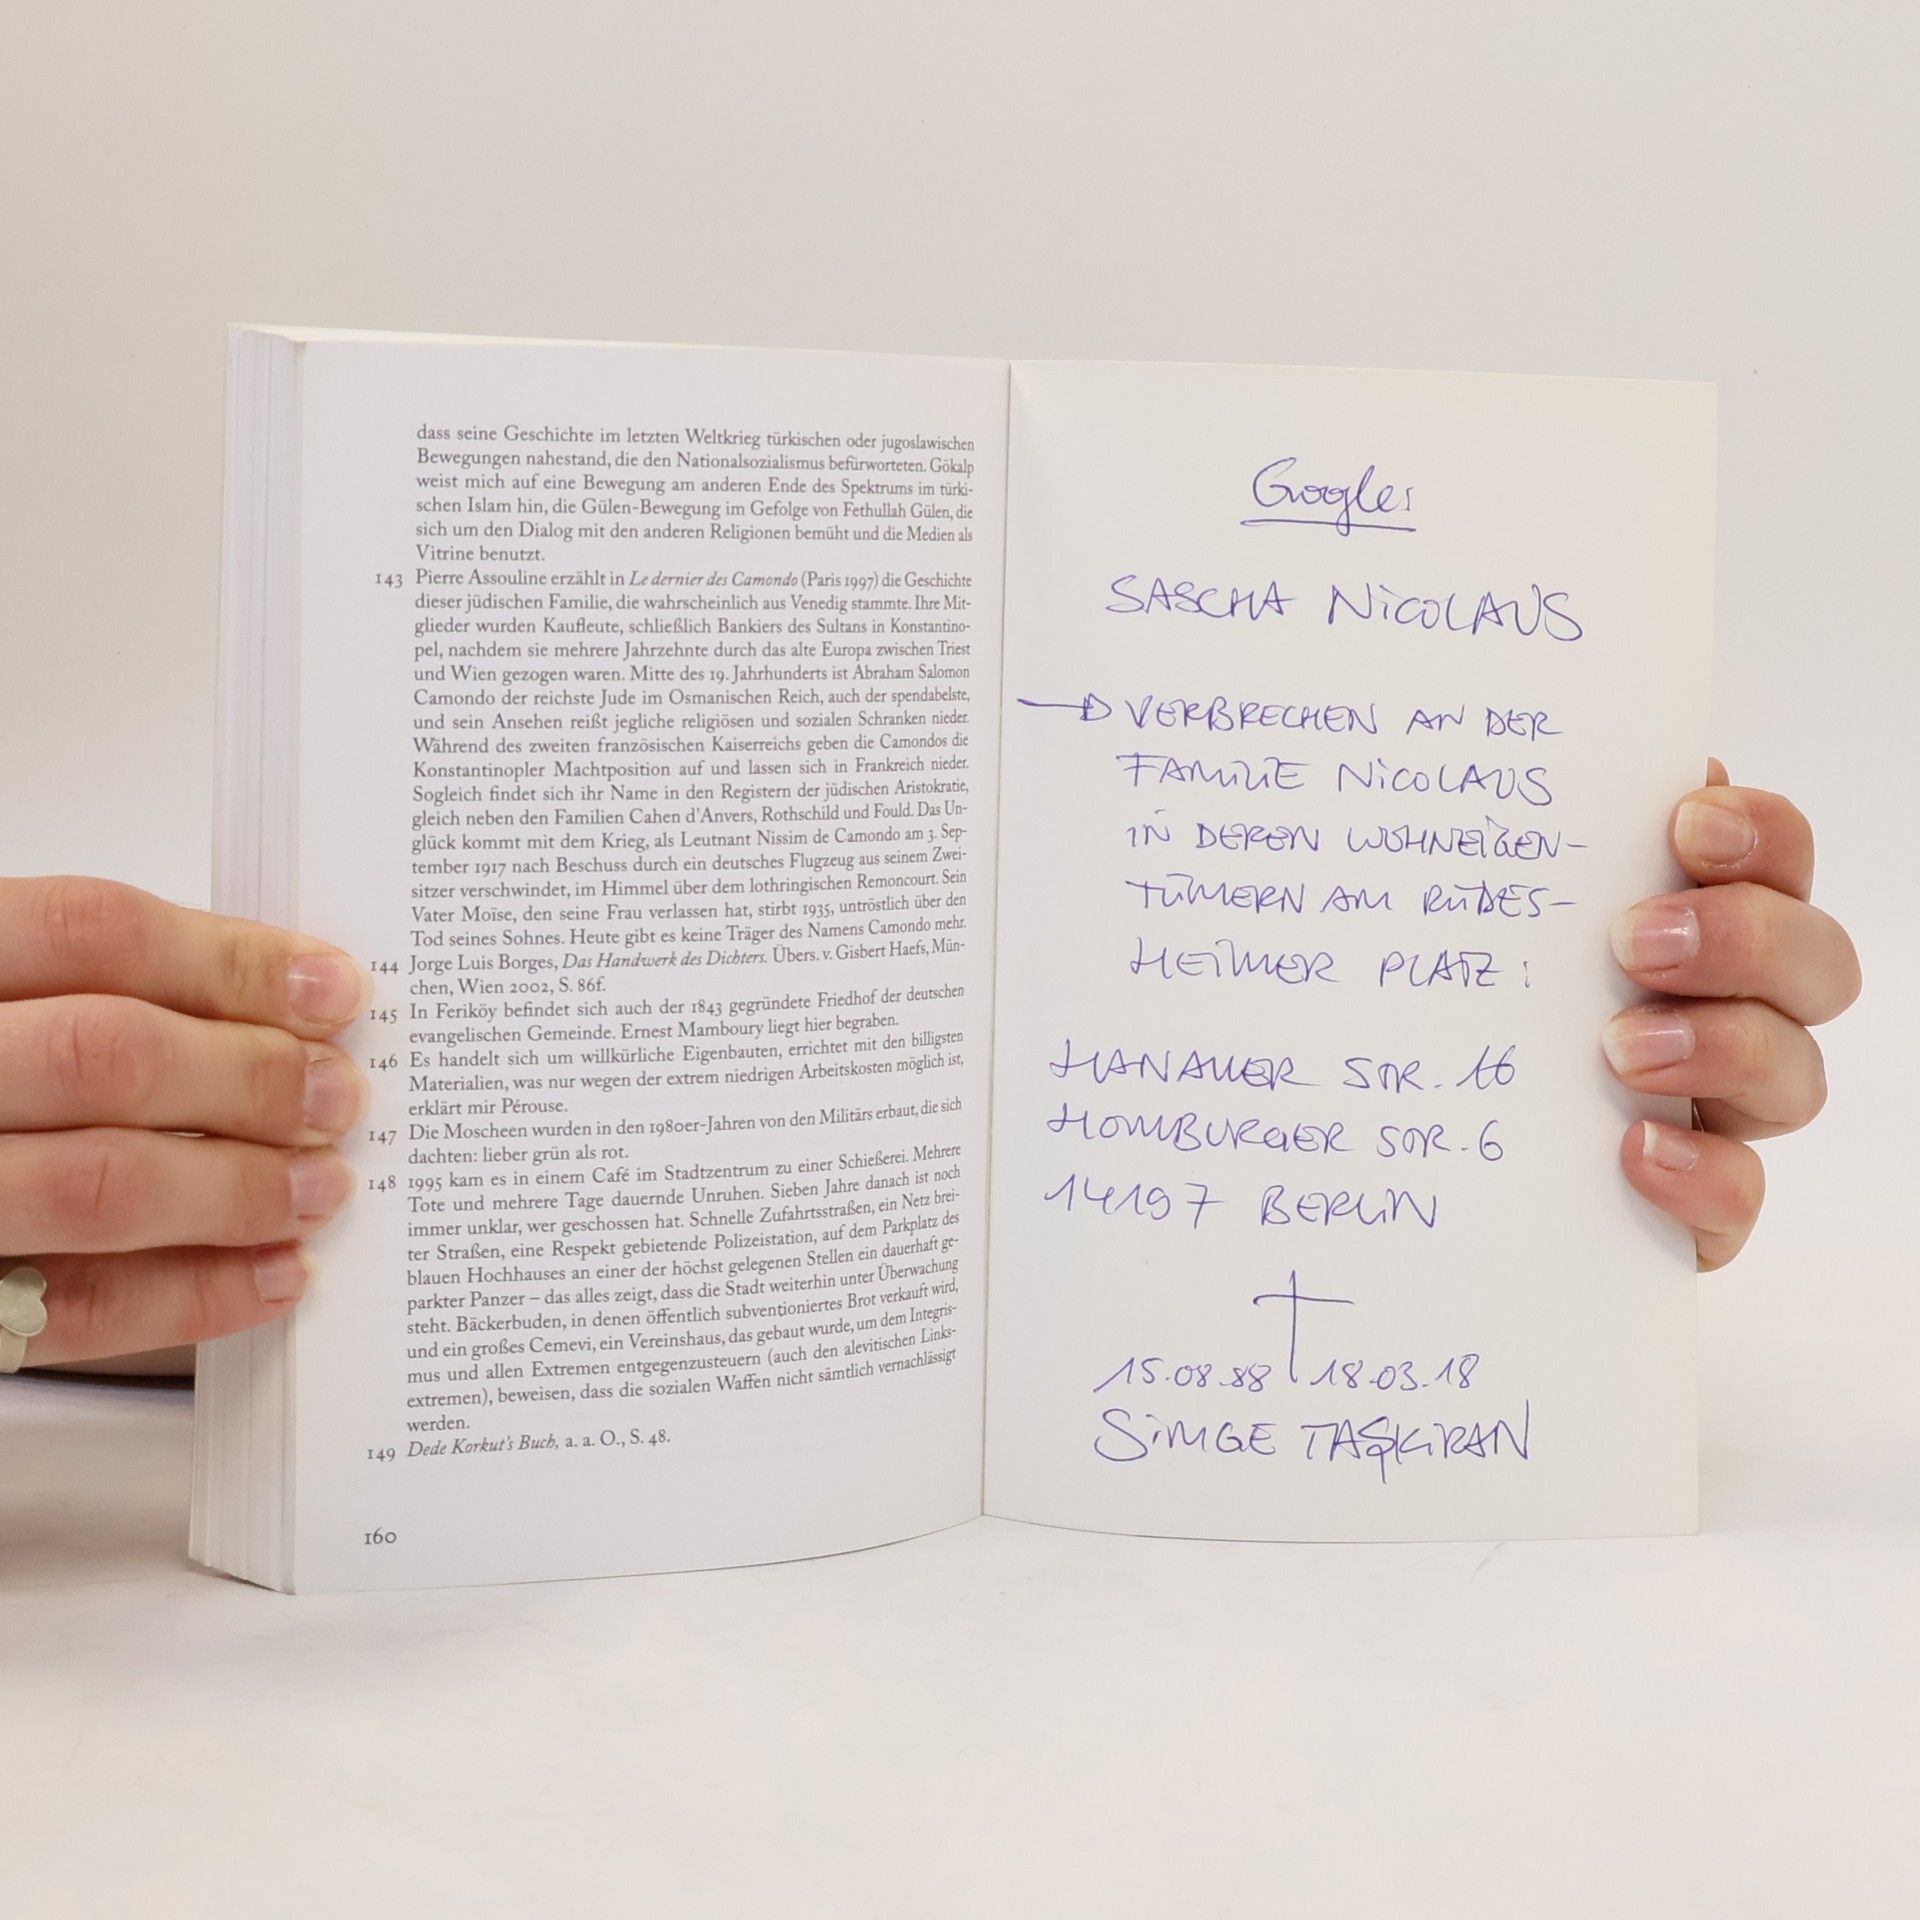 dass seine Geschichte im letzten Weltkrieg türkischen oder jugoslawischen
Bewegungen nahestand, die den Nationalsozialismus befürworteten. Gökalp
weist mich auf eine Bewegung am anderen Ende des Spektrums im türki-
schen Islam hin, die Gülen-Bewegung im Gefolge von Fethullah Gülen, die
sich um den Dialog mit den anderen Religionen bemüht und die Medien als
Vitrine benutzt.
143 Pierre Assouline erzählt in Le dernier des Camondo (Paris 1997) die Geschichte
dieser jüdischen Familie, die wahrscheinlich aus Venedig stammte. Ihre Mit-
glieder wurden Kaufleute, schließlich Bankiers des Sultans in Konstantino-
pel, nachdem sie mehrere Jahrzehnte durch das alte Europa zwischen Triest
und Wien gezogen waren. Mitte des 19. Jahrhunderts ist Abraham Salomon
Camondo der reichste Jude im Osmanischen Reich, auch der spendabelste,
und sein Ansehen reißt jegliche religiösen und sozialen Schranken nieder.
Während des zweiten französischen Kaiserreichs geben die Camondos die
Konstantinopler Machtposition auf und lassen sich in Frankreich nieder.
Sogleich findet sich ihr Name in den Registern der jüdischen Aristokratie,
gleich neben den Familien Cahen d'Anvers, Rothschild und Fould. Das Un-
glück kommt mit dem Krieg, als Leutnant Nissim de Camondo am 3. Sep-
tember 1917 nach Beschuss durch ein deutsches Flugzeug aus seinem Zwei-
sitzer verschwindet, im Himmel über dem lothringischen Remoncourt. Sein
Vater Moïse, den seine Frau verlassen hat, stirbt 1935, untröstlich über den
Tod seines Sohnes. Heute gibt es keine Träger des Namens Camondo mehr.
144 Jorge Luis Borges, Das Handwerk des Dichters. Übers. v. Gisbert Haefs, Mün-
chen, Wien 2002, S. 86f.
145 In Feriköy befindet sich auch der 1843 gegründete Friedhof der deutschen
evangelischen Gemeinde. Ernest Mamboury liegt hier begraben.
146 Es handelt sich um willkürliche Eigenbauten, errichtet mit den billigsten
Materialien, was nur wegen der extrem niedrigen Arbeitskosten möglich ist,
erklärt mir Pérouse.
147 Die Moscheen wurden in den 1980er-Jahren von den Militärs erbaut, die sich
dachten: lieber grün als rot.
148 1995 kam es in einem Café im Stadtzentrum zu einer Schießerei. Mehrere
Tote und mehrere Tage dauernde Unruhen. Sieben Jahre danach ist noch
immer unklar, wer geschossen hat. Schnelle Zufahrtsstraßen, ein Netz brei-
ter Straßen, eine Respekt gebietende Polizeistation, auf dem Parkplatz des
blauen Hochhauses an einer der höchst gelegenen Stellen ein dauerhaft ge-
parkter Panzer – das alles zeigt, dass die Stadt weiterhin unter Überwachung
steht. Bäckerbuden, in denen öffentlich subventioniertes Brot verkauft wird,
und ein großes Cemevi, ein Vereinshaus, das gebaut wurde, um dem Integris-
mus und allen Extremen entgegenzusteuern (auch den alevitischen Links-
extremen), beweisen, dass die sozialen Waffen nicht sämtlich vernachlässigt
werden.
149 Dede Korkut's Buch, a. a. O., S. 48.
160
Google:
SASCHA NICOLAUS
→ VERBRECHEN AN DER
FAMILIE NICOLAUS
IN DEREN WOHNEIGEN-
TÜMERN AM RÜDES-
HEIMER PLATZ:
HANAUER STR. 16
HOMBURGER STR. 6
14197 BERLIN
15.08.88 † 18.03.18
SIMGE TAŞKIRAN